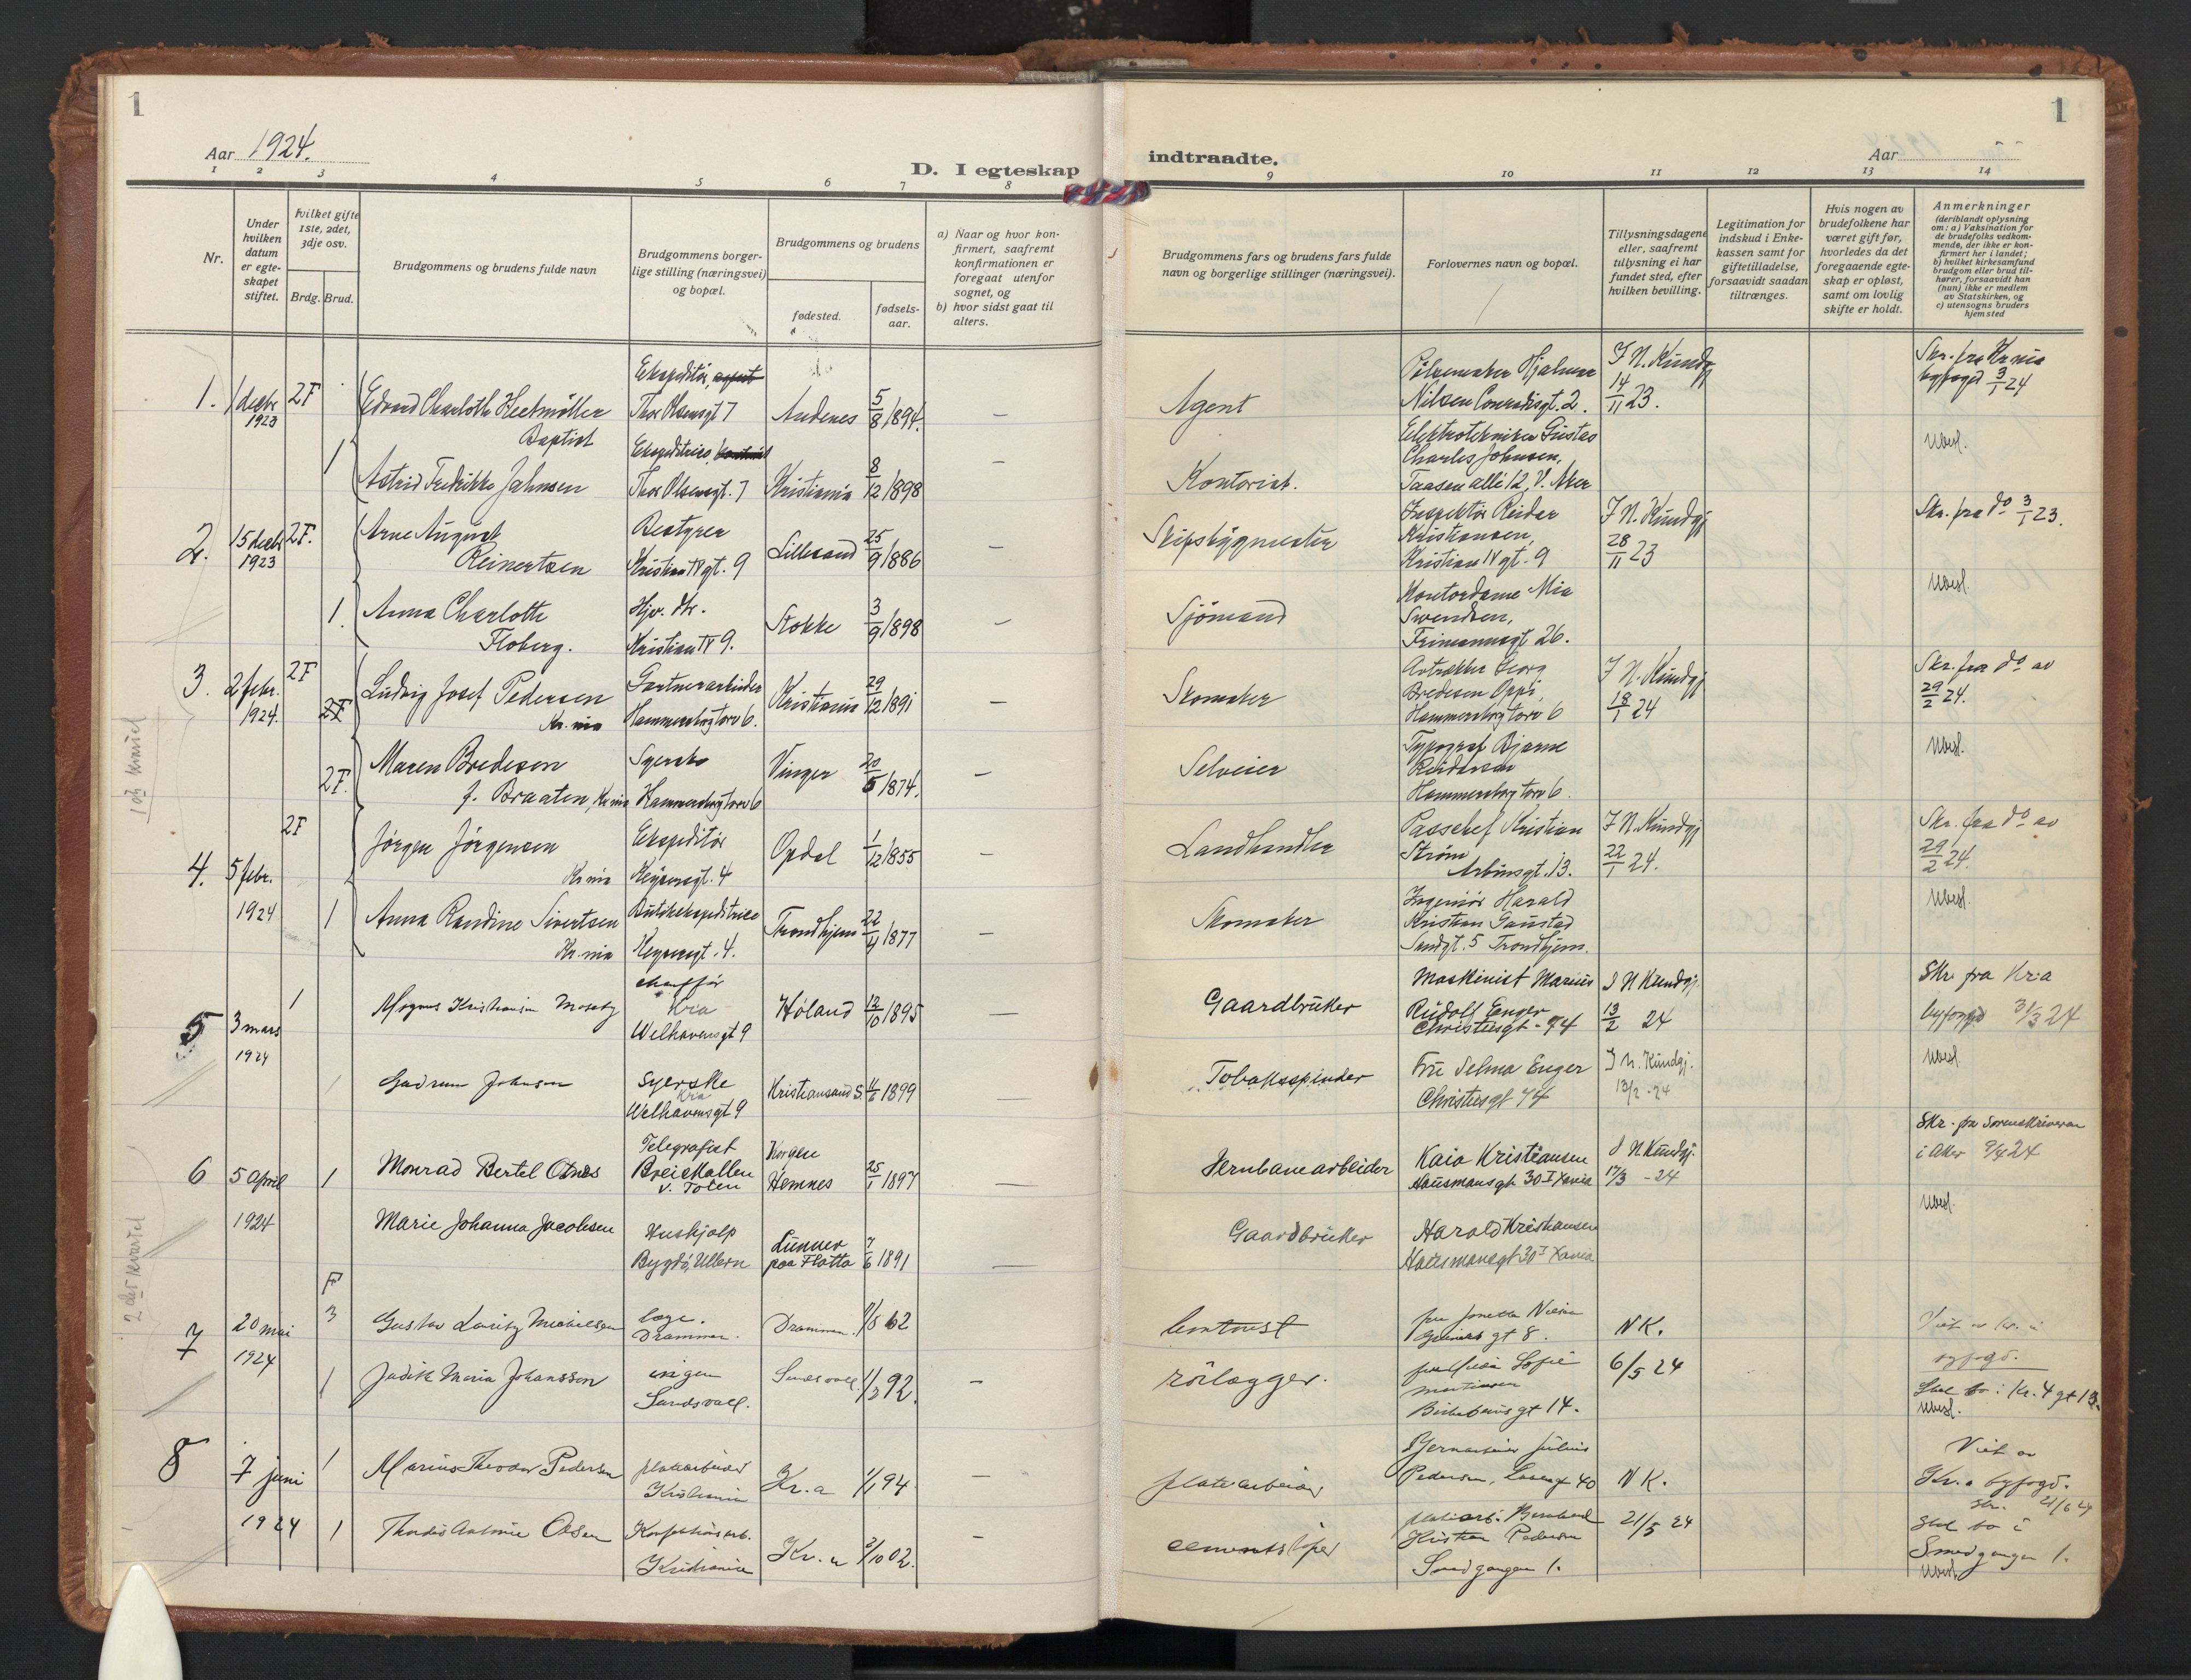 1
Aar 1924.
D. I egteskap
1 2 3 4 5 6 7 8
Nr.
Under hvilken datum er egteskapet stiftet.
Hvilket gifte 1ste, 2det, 3dje osv.
Brdg. Brud.
Brudgommens og brudens fulde navn
Brudgommens borgerlige stilling (næringsvei) og bopæl.
Brudgommens og brudens
fødested.
fødselsaar.
a) Naar og hvor konfirmert, saafremt konfirmationen er foregaat utenfor sognet, og
b) hvor sidst gaat til alters.
1. 1 decbr 1923 2F
Edvard Charloth Heetmøller
Baptist
Ekspeditør,
Thor Olsensgt 7
Andenes 5/8 1894. —
1 Astrid Fredrikke Jahnsen
Ekspeditrice
Thor Olsensgt. 7
Kristiania 8/12 1898 —
2. 15 decbr 1923 2F.
Arne August
Reinertsen
Bestyrer
Kristian IV gt. 9
Lillesand 25/9 1886 —
1. Anna Charlotte
Floberg.
Hjv. dtr.
Kristian IV 9.
Stokke 3/9 1898 —
3. 2 febr. 1924. 2F
Ludvig Josef Pedersen
Kr.nia
Gartnerarbeider
Hammersborg torv 6.
Kristiania 29/12 1891 —
2F. Maren Bredesen
f. Braaten, Kr.nia
Syerske
Hammersborg torv 6
Vinger 20/5 1874. —
4. 5 febr. 1924 2F
Jørgen Jørgensen
Kr.nia
Ekspeditør
Keysersgt. 4
Opdal 1/12 1855 —
1 Anna Randine Sivertsen
Kr.nia
Butikekspeditrice
Keysersgt. 4.
Trondhjem 22/4 1877 —
5 3 mars 1924 1
Magnus Kristiansen Moseby
chauffør
Kra
Welhavensgt 9
Høland 12/10 1895 —
Gudrun Johnsen
Syerske
Kra
Welhavensgt 9
Kristiansand S. 4/6 1899 —
6 5 April 1924 1
Monrad Bertel Otnes
Telegrafist
Breiskallen
V. Toten
Korgen
Hemnes 25/1 1897 —
Marie Johanna Jacobsen
Huskjalp
Bygdø, Ullern
Lunner
paa Flatta 7/6 1891 —
7 20 mai 1924 F 3
Gustav Lauritz Michelsen
læge.
Drammen.
Drammen. 9/5 62
1 Judith Maria Johansson
ingen
Sundsvall.
Sundsvall 1/3 92. —
8 7 juni 1924 1
Marius Theodor Pedersen
platearbeider
Kristiania
Kr.a 1/1 94 —
1 Thordis Antonie Olsen
Konfektionsarb.
Kristiania
Kr.a 3/10 02. —
1ste kvartel
2det kvartel
1
indtraadte.
Aar
9 10 11 12 13 14
Brudgommens fars og brudens fars fulde navn og borgerlige stillinger (næringsvei).
Forlovernes navn og bopæl.
Tillysningsdagene eller, saafremt tillysning ei har fundet sted, efter hvilken bevilling.
Legitimation for indskud i Enkekassen samt for giftetilladelse, forsaavidt saadan tiltrænges.
Hvis nogen av brudefolkene har været gift før, hvorledes da det foregaaende egteskap er opløst, samt om lovlig skifte er holdt.
Anmerkninger
(deriblandt oplysning om: a) Vaksination for de brudefolks vedkommende, der ikke er konfirmert her i landet; b) hvilket kirkesamfund brudgom eller brud tilhører, forsaavidt han (hun) ikke er medlem av Statskirken, og c) utensogns bruders hjemsted
Agent
Pølsemaker Hjalmar
Nilsen Conradisgt. 2.
I N. Kundgj
14/11 23.
Skr. fra Kr.nia
byfoged 3/1 24
Kontorist.
Elektrotekniker Gustav
Charles Johnsen,
Taasen allé 12, V. Aker
Ubesl.
Skipsbygmester
Inspektør Reidar
Kristiansen,
Kristian IV gt. 9
I N. Kundgj
28/11 23
Skr. fra do 3/1 23.
Sjömand
Kontordame Mia
Swendsen,
Frimannsgt 26.
Ubesl.
Skomaker
Avtrækker Georg
Bredesen Oppi,
Hammersborg torv 6
I N. Kundgj
18/1 24
Skr. fra do av
29/2 24.
Selveier
Typograf Bjarne
Reidarson
Hammersborg torv 6.
Ubesl.
Landhandler
Passchef Kristian
Strøm
Arbinsgt. 13.
I N. Kundgj
22/1 24.
Skr. fra do av
29/2 24.
Skomaker
Ingeniør Harald
Kristian Gaustad
Sandgt. 5 Trondhjem.
Ubesl.
Gaardbruker
Maskinist Marius
Rudolf Enger
Christiesgt - 74
I N Kundgj.
13/2 24
Skr fra Kr.a
byfogd 31/3 24
Tobaksspinder
Fru Selma Enger
Christiesgt 74
I N. Kundgj.
13/2 -24
Ubesl.
Jernbanearbeider
Kaia Kristiansen
Hausmansgt 30 I Xania
I N Kundgj.
17/3 -24
Skr. fra Sorenskriveren
i Aker 9/4 24
Gaardbruker
Harald Kristiansen
Hausmansgt 30 I Xania
Ubesl.
fru Jonetta Nielsen
gt 8.
N K.
6/5 24
byfogd.
rörlægger.
Sofie
Martinsen
Birkebeinsgt 14.
Skal bo i Kr. 4 gt 13.
Ubesl.
platearbeider
Jernarbeider Julius
Pedersen, 40
N K.
21/5 24
Viet av
Kr.a byfogd.
Skr. 21/6 24
cementstøper
platearb. Bernhard
Kristian Pedersen
Smedgangen 1.
Skal bo i
Smedgangen 1.
Ubesl.